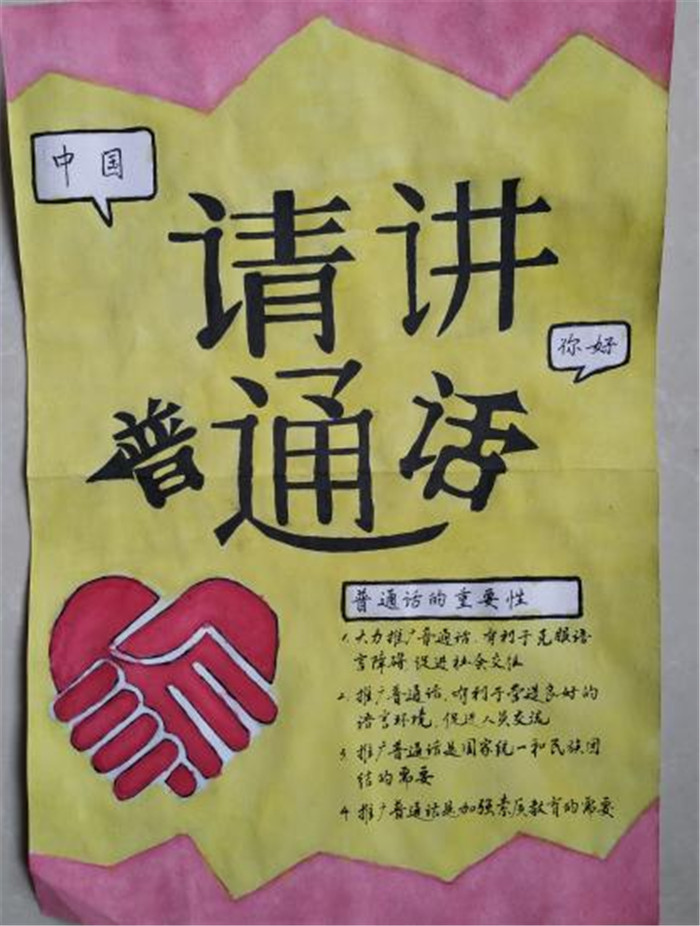 中国
请讲
你好
普通话
普通话的重要性
1.大力推广普通话,有利于克服语
言障碍,促进社会交往
2.推广普通话,有利于营造良好的
语言环境,促进人员交流
3.推广普通话是国家统一和民族团
结的需要
4.推广普通话是加强素质教育的需要